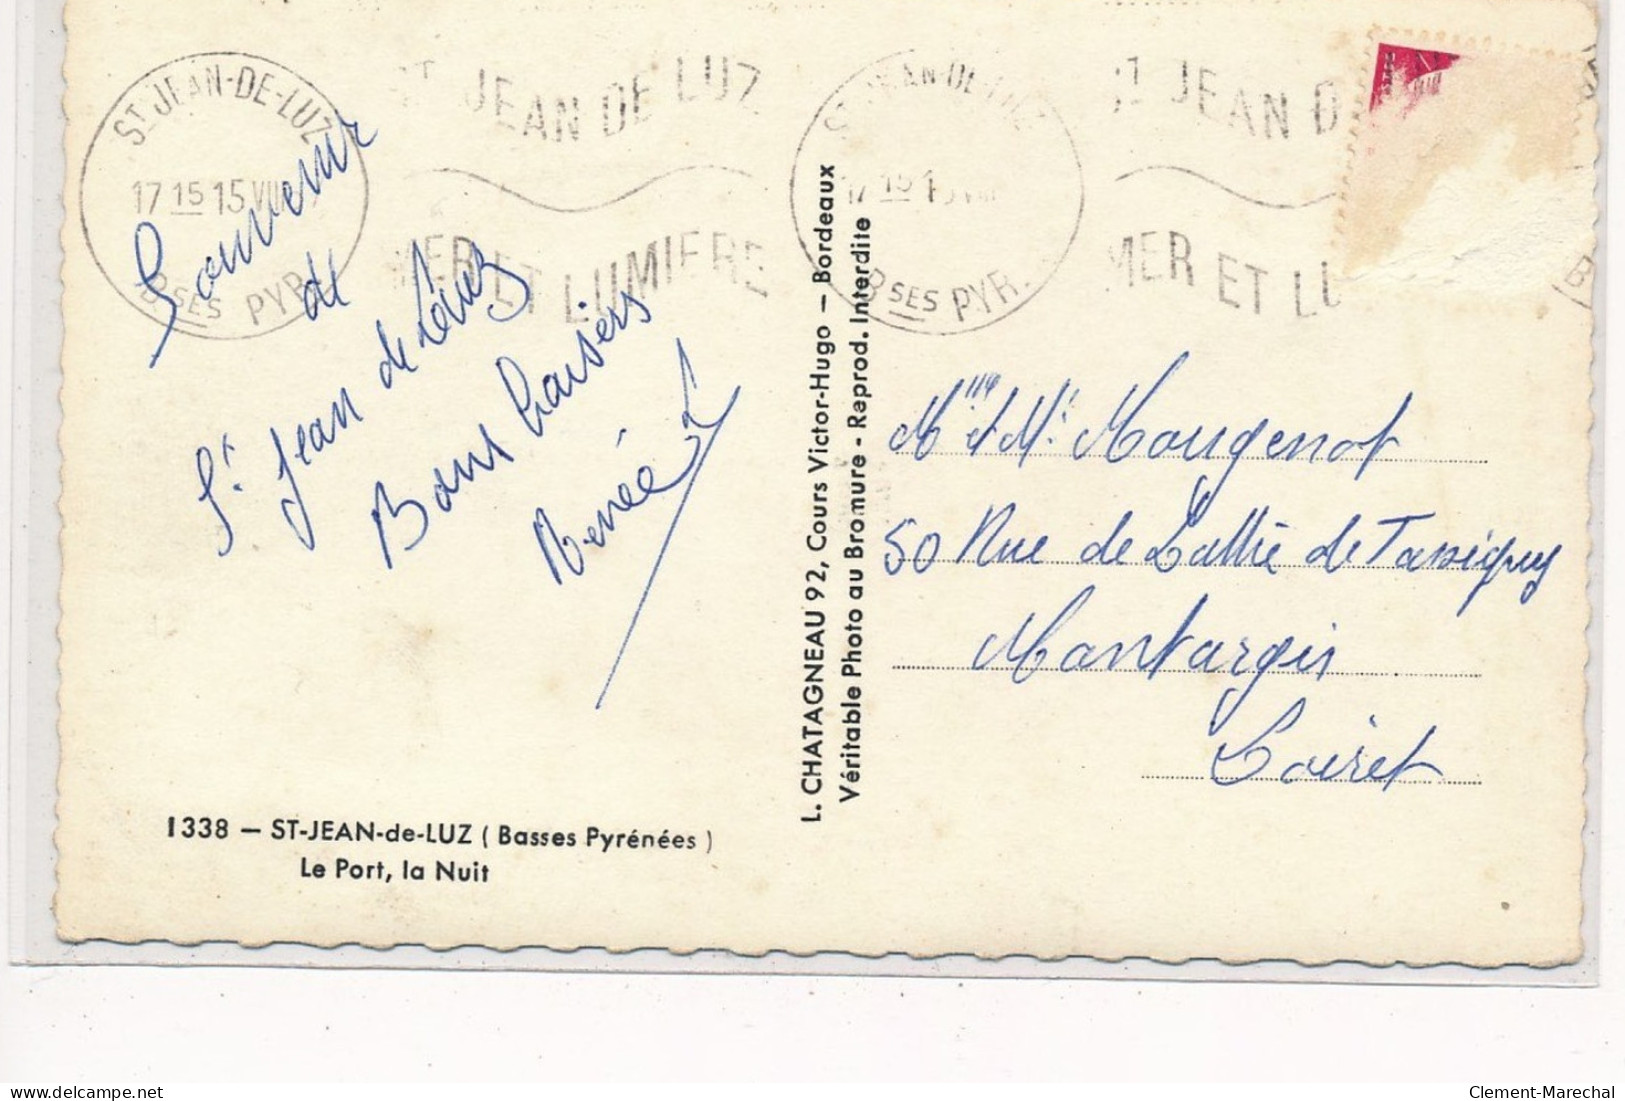 ST JEAN-DE-LUZ
17 15 15 VIII
BSES PYR.
ST JEAN DE LUZ
MER ET LUMIERE
ST JEAN-DE-LUZ
17 15 15 VIII
BSES PYR.
ST JEAN D
MER ET LU
Souvenir
de
St. Jean de Luz
Bons baisers
Renée
L. CHATAGNEAU 92, Cours Victor-Hugo — Bordeaux
Véritable Photo au Bromure - Reprod. Interdite
Mr et Me Mougenot
50 Rue de Lattre de Tassigny
Montargis
Loiret
1338 — ST-JEAN-de-LUZ ( Basses Pyrénées )
Le Port, la Nuit
delcampe.net
Clement-Marechal